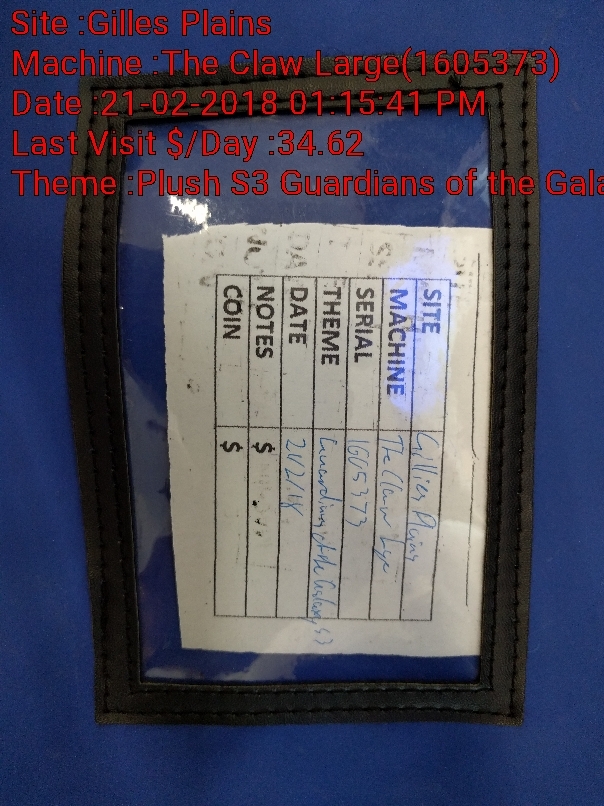 Site :Gilles Plains
Machine :The Claw Large(1605373)
Date :21-02-2018 01:15:41 PM
Last Visit $/Day :34.62
Theme :Plush S3 Guardians of the Gala
SITE Gillies Plains
MACHINE The Claw Lge
SERIAL 1605373
THEME Guardians of the Galaxy S3
DATE 21/2/18
NOTES $
COIN $